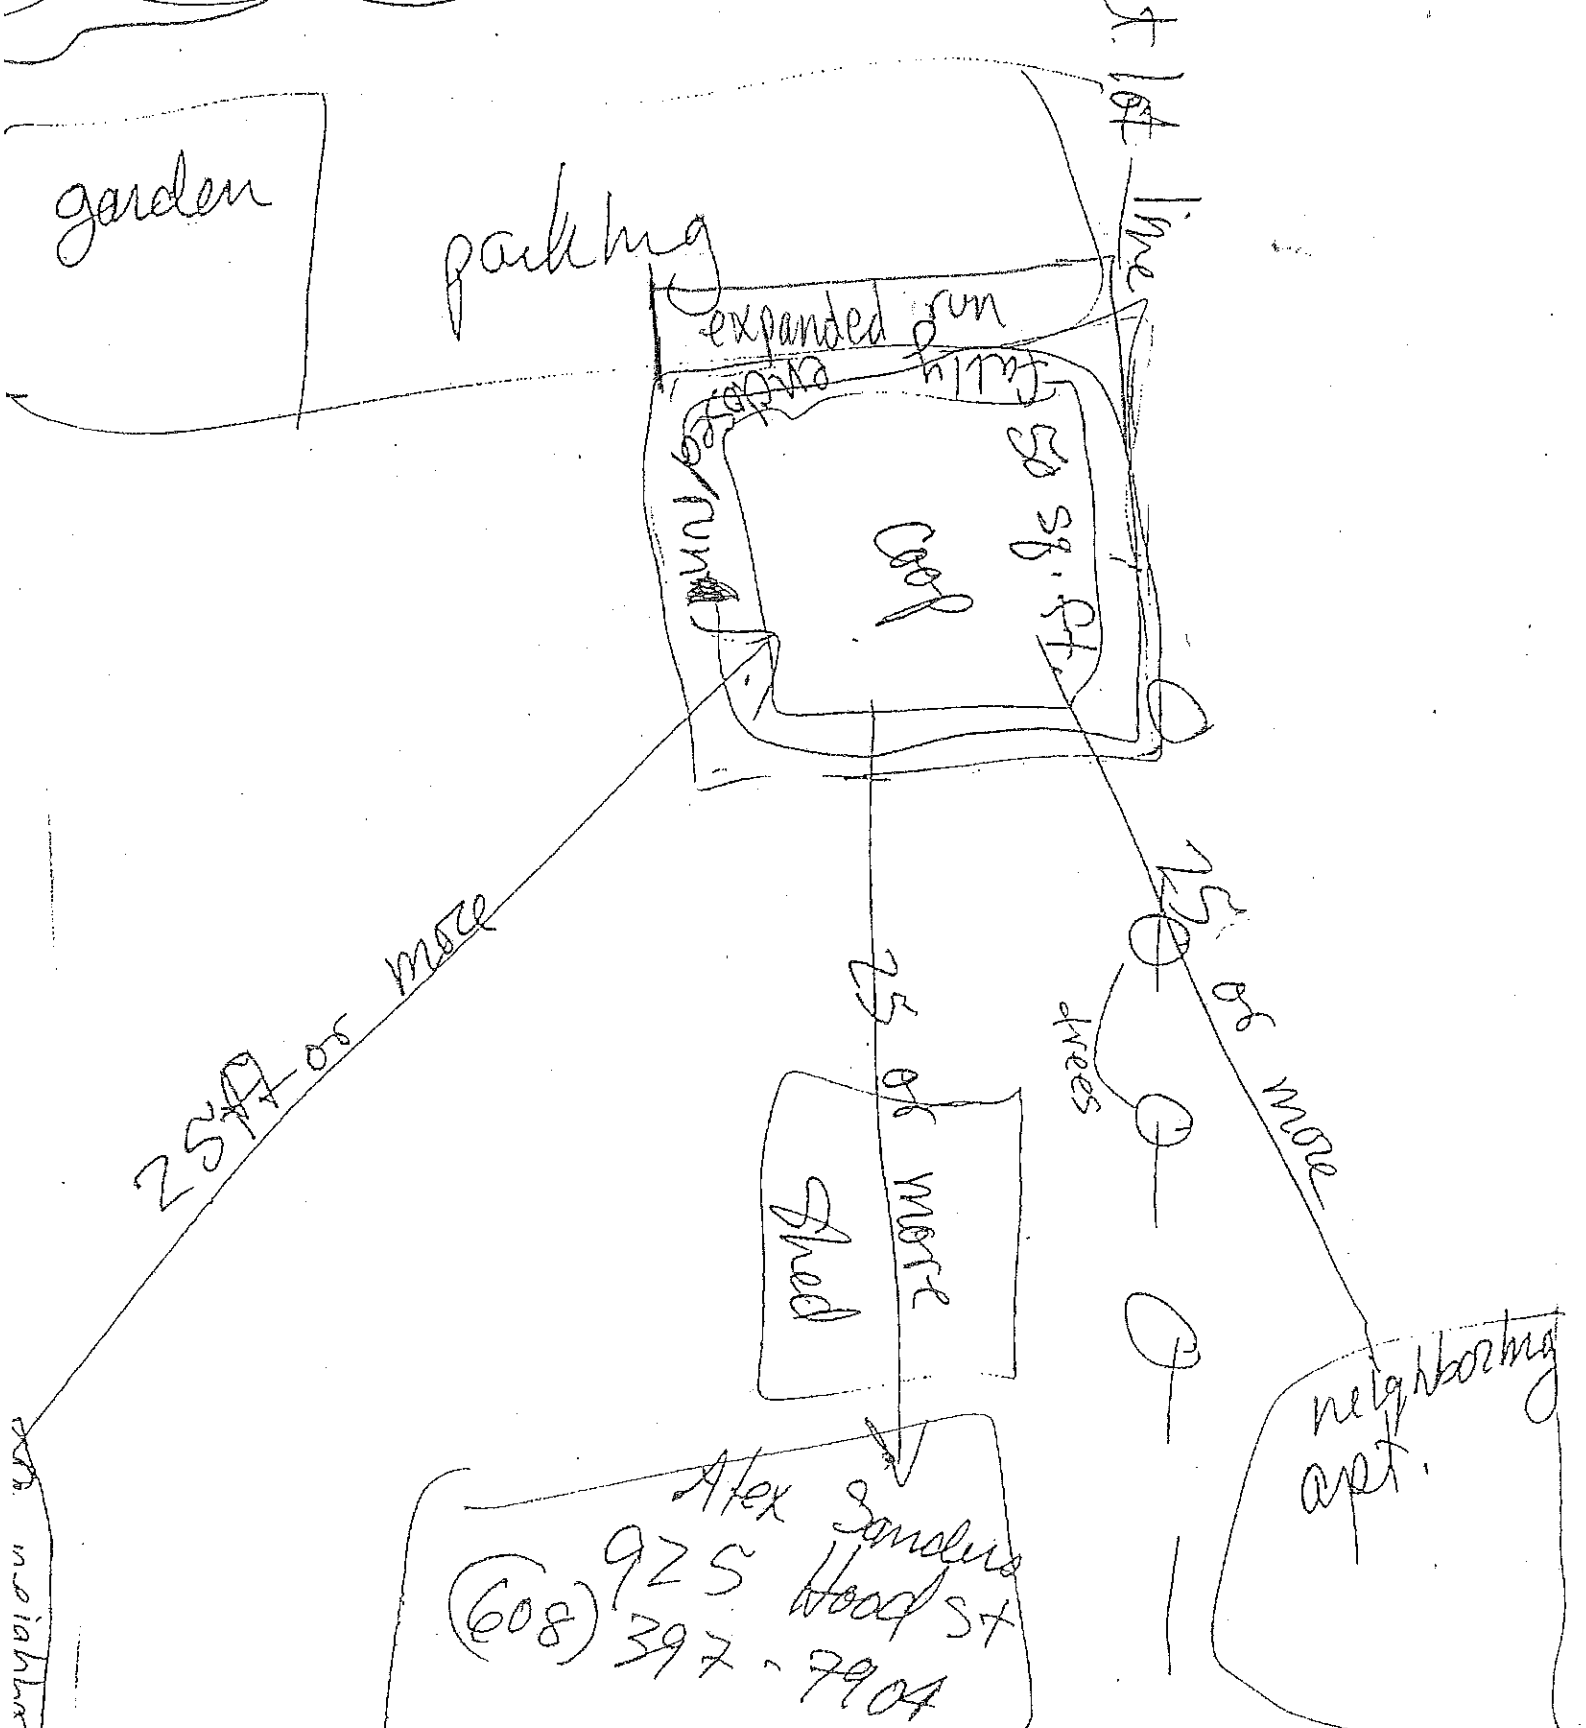 t. lot line
garden
parking
expanded run
fully enclosed run
50 sq. ft.
Coop
25 ft or more
25 or more
25 or more
trees
Shed
neighboring
apt.
Alex Sanders
925 Hood St
(608) 397-7904
neighbor